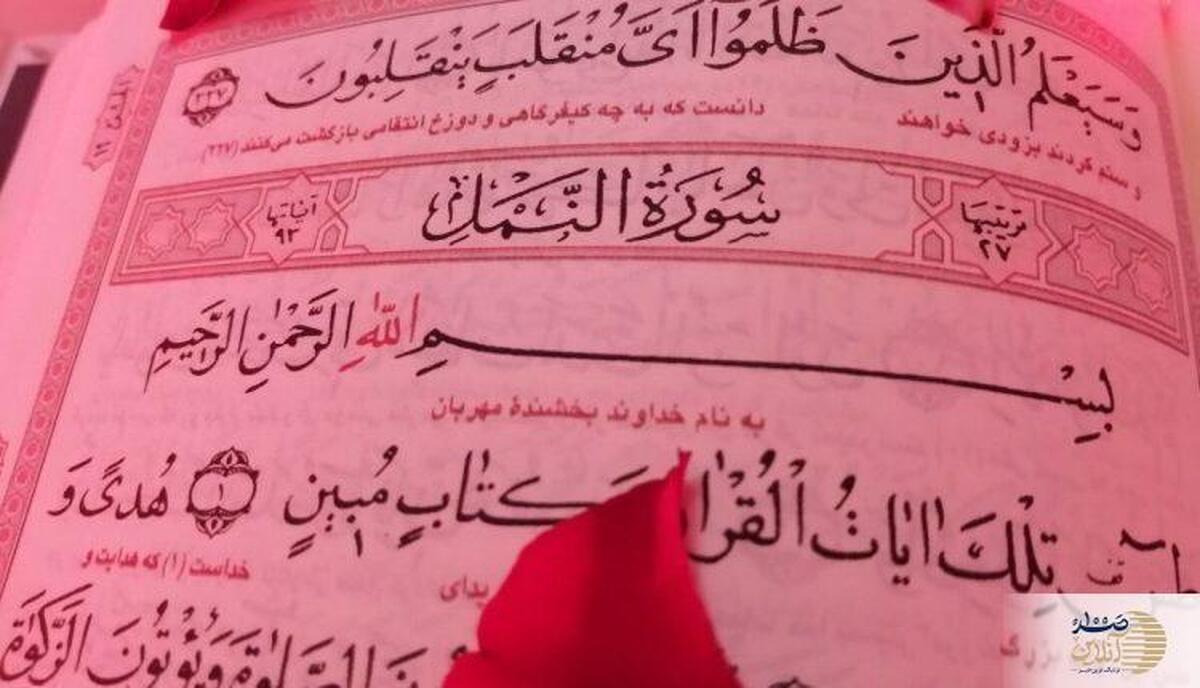 وَسَيَعْلَمُ الَّذِينَ ظَلَمُوا أَىَّ مُنْقَلَبٍ يَنْقَلِبُونَ ﴿٢٢٧﴾
و ستم کردند بزودی خواهند دانست که به چه کیفرگاهی و دوزخ انتقامی بازگشت می‌کنند (۲۲۷)
مرتبتها ٢٧ سُورَةُ النَّمْلِ آیاتها ٩٣
بِسْمِ اللّٰهِ الرَّحْمٰنِ الرَّحِيمِ
به نام خداوند بخشندهٔ مهربان
تِلْكَ اٰيَاتُ الْقُرْاٰنِ كِتَابٍ مُبِينٍ ﴿١﴾ هُدًى وَ
خداست (۱) که هدایت و
وَيُؤْتُونَ الزَّكٰوةَ
صدا آنلاین